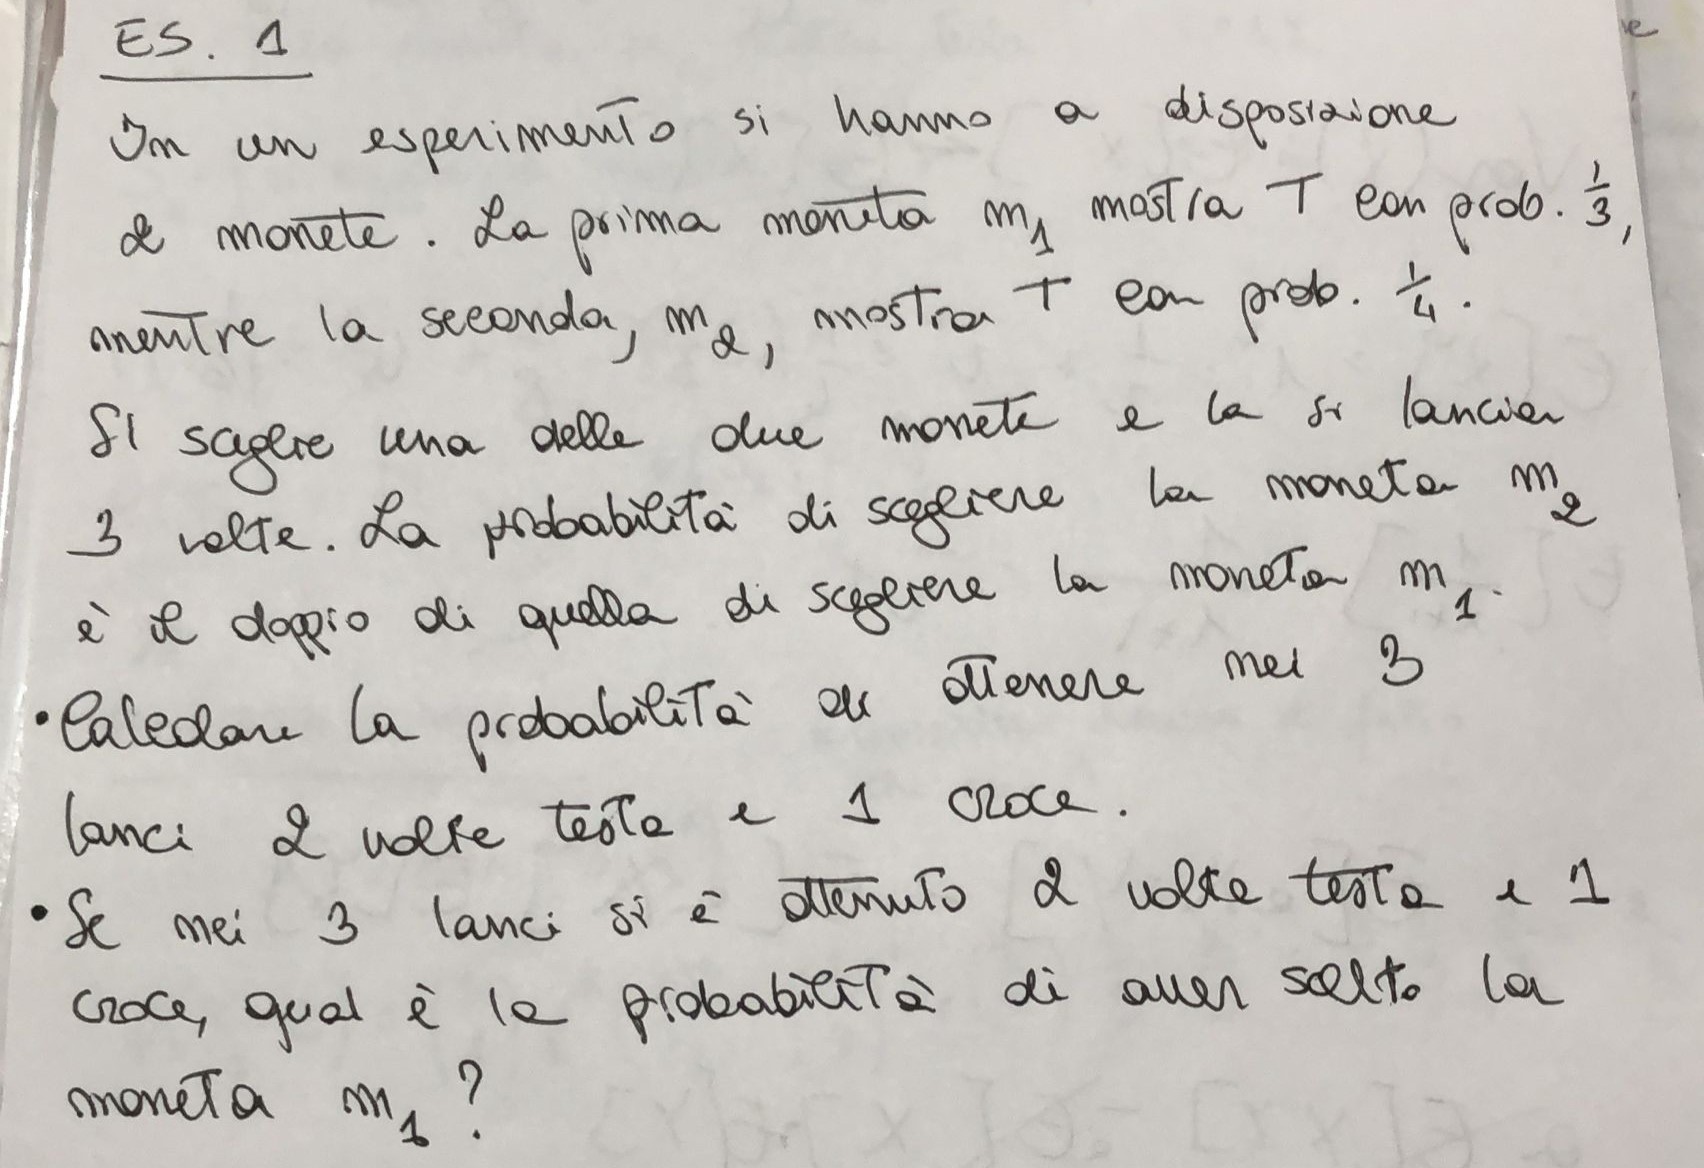 ES. 1
In un esperimento si hanno a disposizione
2 monete. La prima moneta m1 mostra T con prob. 1/3,
mentre la seconda, m2, mostra T con prob. 1/4.
Si sceglie una delle due monete e la si lancia
3 volte. La probabilità di scegliere la moneta m2
è il doppio di quella di scegliere la moneta m1.
• Calcolare la probabilità di ottenere nei 3
lanci 2 volte testa e 1 croce.
• Se nei 3 lanci si è ottenuto 2 volte testa e 1
croce, qual è la probabilità di aver scelto la
moneta m1?